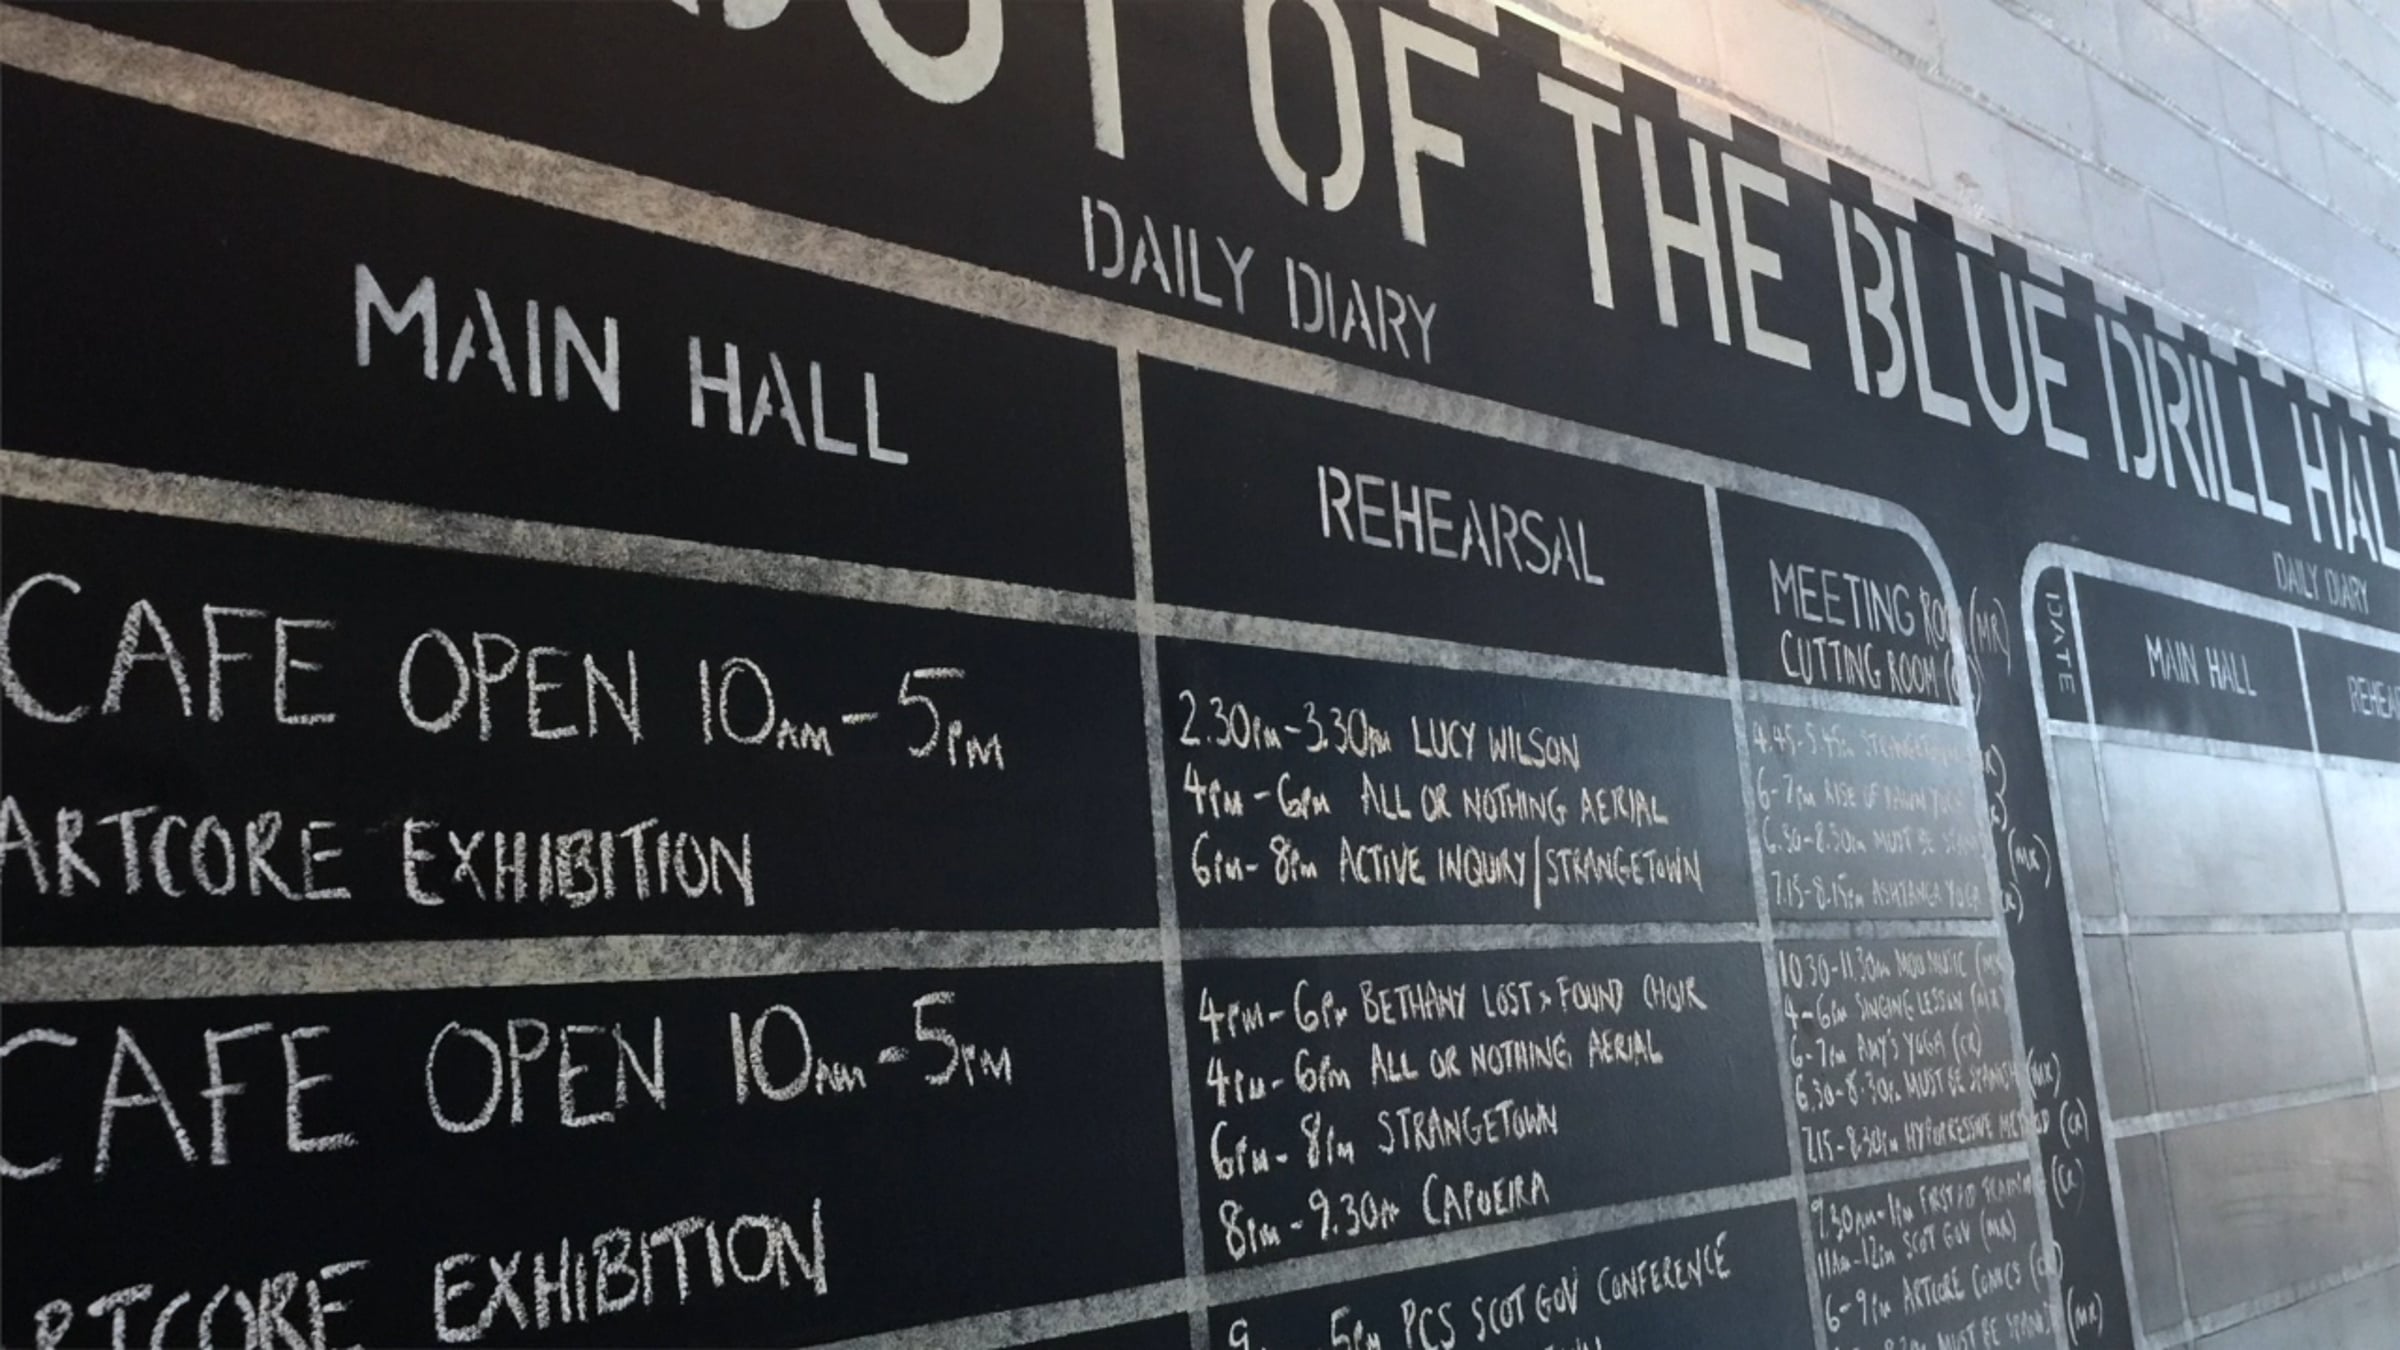 OF THE BLUE DRILL HALL
DAILY DIARY
MAIN HALL
REHEARSAL
MEETING ROOM (MR)
CUTTING ROOM
CAFE OPEN 10AM-5PM
ARTCORE EXHIBITION
2.30PM-3.30PM LUCY WILSON
4PM-6PM ALL OR NOTHING AERIAL
6PM-8PM ACTIVE INQUIRY/STRANGETOWN
4.45-5.45PM STRANGETOWN
6-7PM RISE UP DAWN YOGA
6.30-8.30PM MUST BE (MR)
7.15-8.15PM ASHTANGA YOGA
CAFE OPEN 10AM-5PM
ARTCORE EXHIBITION
4PM-6PM BETHANY LOST & FOUND CHOIR
4PM-6PM ALL OR NOTHING AERIAL
6PM-8PM STRANGETOWN
8PM-9.30PM CAPOEIRA
10.30-11.30AM MOO MUSIC (MR)
4-6PM SINGING LESSON (MR)
6-7PM AMY'S YOGA (CR)
6.30-8.30PM MUST BE SPANISH (MR)
7.15-8.30PM HYPOPRESSIVE METHOD (CR)
9 5PM PCS SCOT GOV CONFERENCE
9.30AM-1PM FIRST AID TRAINING (CR)
11AM-12PM SCOT GOV (MR)
6-9PM ARTCORE COMICS (CR)
MUST BE SPANISH (MR)
DAILY DIARY
DATE
MAIN HALL
REHEA